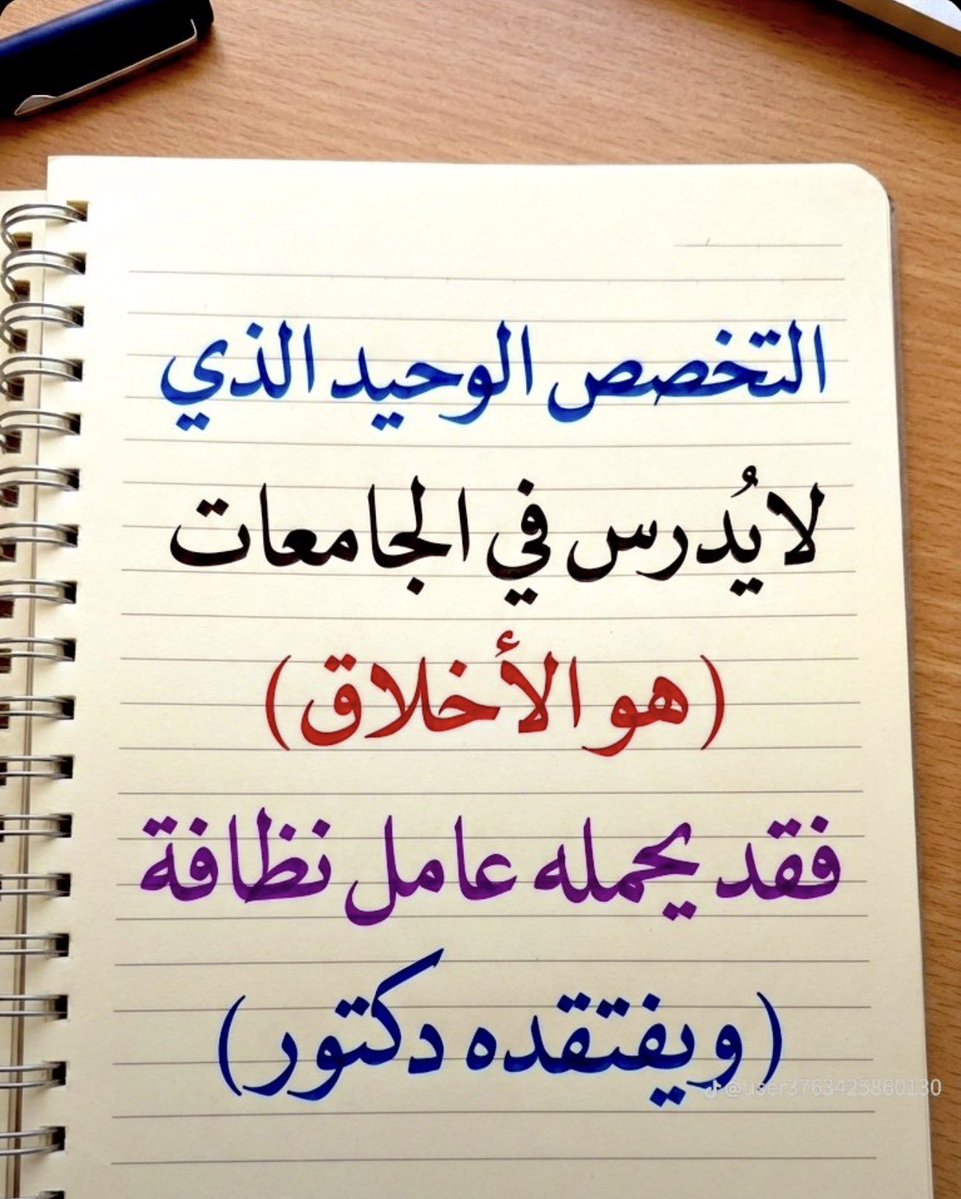 التخصص الوحيد الذي
لا يُدرس في الجامعات
(هو الأخلاق)
فقد يحمله عامل نظافة
(ويفتقده دكتور)
@user3763425860130